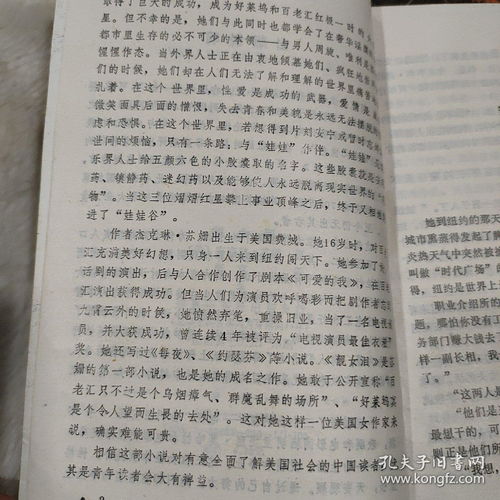 取得了巨大的成功，成为好莱坞和百老汇红极一时的
星。但不幸的是，她们与此同时也都学会了在奢华淫
都市里生存的必不可少的本领——与男人周旋、唯利是
惺惺作态。当外界人士正在由衷地倾慕她们、疯狂地
们的时候，她们却在人们无法了解和理解的世界里痛苦
扎着。在这个世界里，性爱是成功的武器，爱情是
微笑面具后面的憎恨，失去青春和美貌是永远无法摆脱
虑和恐惧。在这个世界里，若想得到片刻安宁或暂时忘
世间的烦恼，只有一条路：与“娃娃”作伴。“娃娃”
乐界人士给五颜六色的小胶囊取的名字。这些胶囊就是
药、镇静药、迷幻药以及能够使人永远脱离现实世界的“
物”。当这三位熠熠红星攀上事业顶峰之后，终于又相继
进了“娃娃谷”。
作者杰克琳·苏姗出生于美国费城。她16岁时，对百
汇充满美好幻想，只身一人来到纽约闯天下。她参加了
话剧的演出，后与人合作创作了剧本《可爱的我》，在百
汇演出获得成功。但当人们为演员欢呼喝彩而把剧作者忘
九霄云外的时候，她愤然弃笔，重操旧业，当了一名电视
员，并大获成功，曾连续4年被评为“电视演员最佳衣着
奖。她还写过《每夜》、《约瑟芬》等小说。《靓女泪》是苏
姗的第一部小说，也是她的成名之作。她敢于公开宣称“百
老汇只不过是个乌烟瘴气、群魔乱舞的场所”、“好莱坞
是个令人望而生畏的去处”。这对她这样一位美国女作家来
说，确实难能可贵。
相信这部小说对有意全面了解美国社会的中国读者，
其是青年读者会大有裨益。
• 2
她到纽约的那天
城市熏蒸得发起了脾
炎热天气中突然被
叫做“时代广场”
得，纽约是世界上
职业介绍所
题，哪怕你没有工
务部门赚大钱去
样一副长相，我
了。”
“这两人是
“他们是
最想干的，可
则正是他们所
孔夫子旧书网